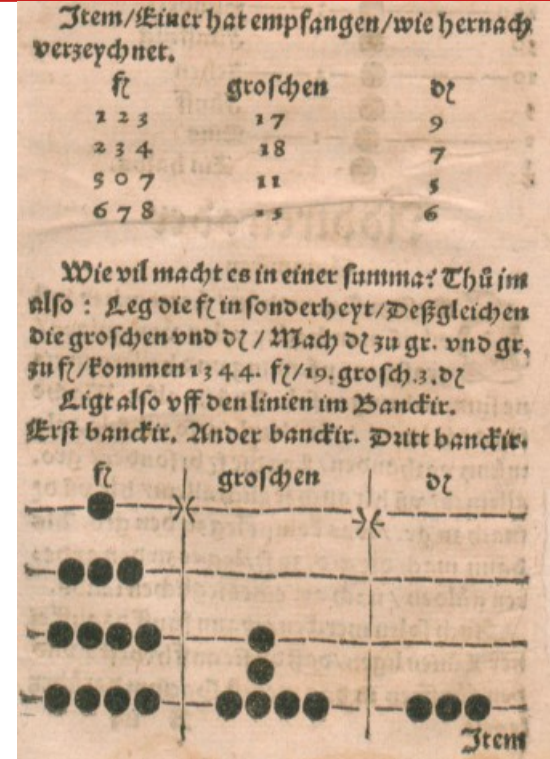 Item/Einer hat empfangen/wie hernach
verzeychnet.
fl groschen dl
1 2 3 17 9
2 3 4 18 7
3 0 7 11 5
6 7 8 13 6
Wie vil macht es in einer summa? Thů jm
also : Leg die fl in sonderheyt/Deßgleichen
die groschen vnd dl / Mach dl zu gr. vnd gr.
zu fl/kommen 1 3 4 4. fl/19.grosch.3.dl
Ligt also vff den linien im Banckir.
Erst banckir. Ander banckir. Dritt banckir.
fl groschen dl
Item